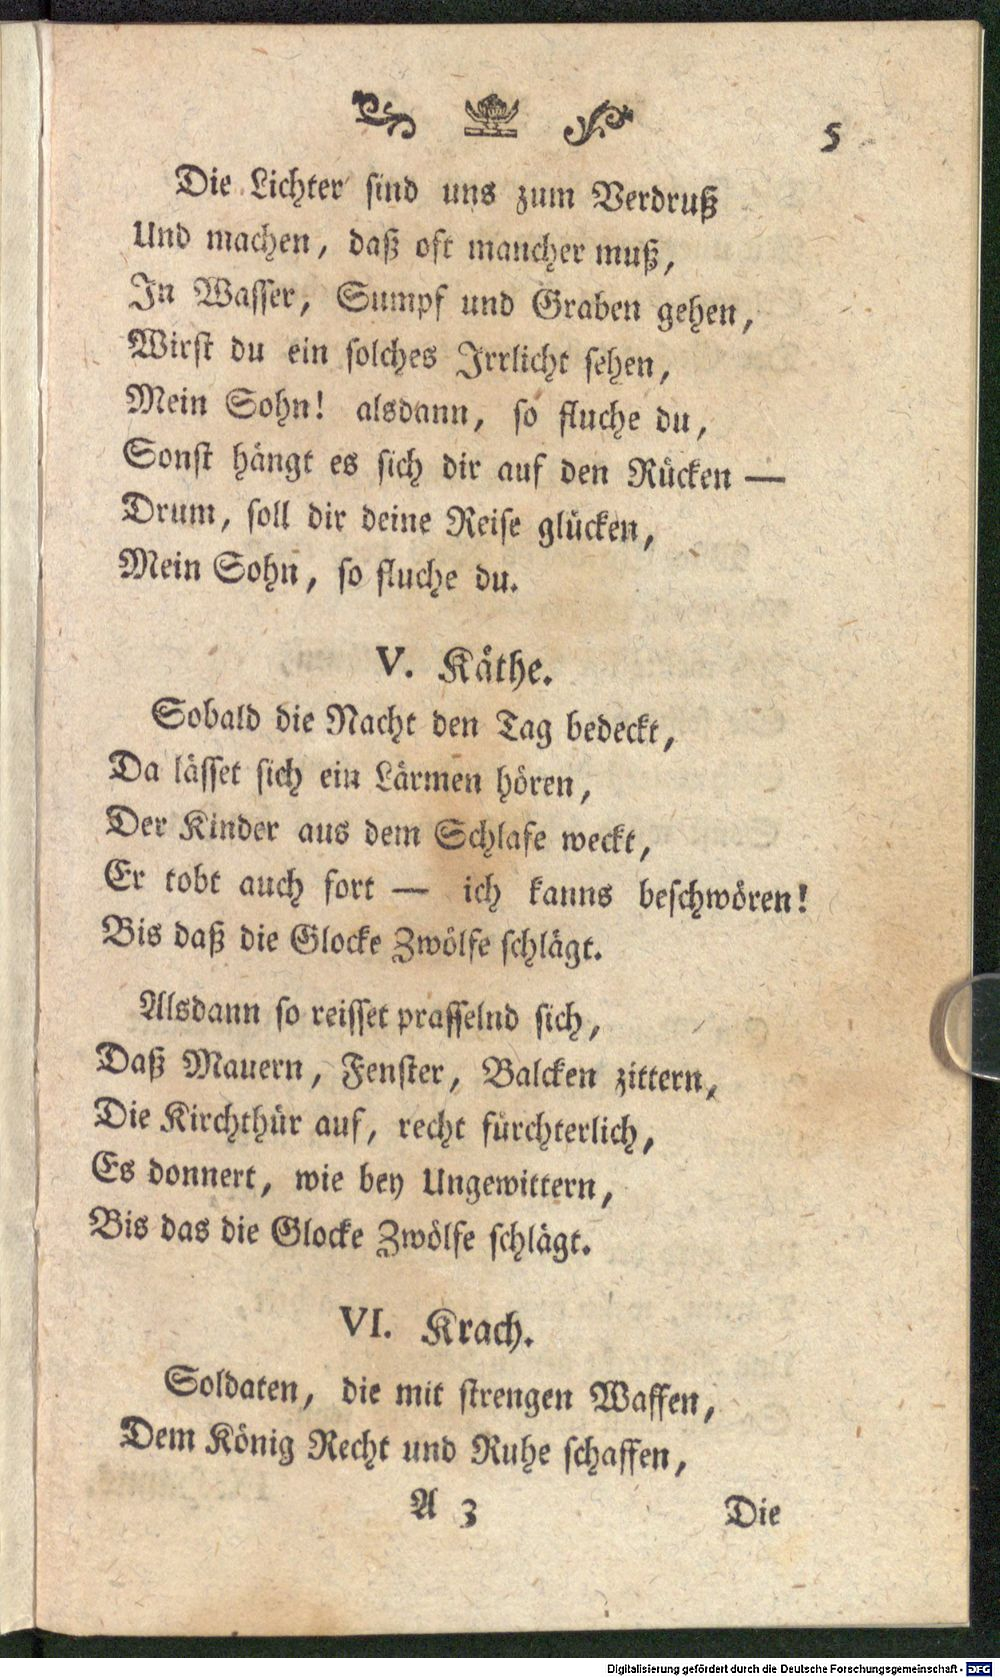 5
Die Lichter sind uns zum Verdruß
Und machen, daß oft mancher muß,
In Wasser, Sumpf und Graben gehen,
Wirst du ein solches Irrlicht sehen,
Mein Sohn! alsdann, so fluche du,
Sonst hängt es sich dir auf den Rücken —
Drum, soll dir deine Reise glücken,
Mein Sohn, so fluche du.
V. Käthe.
Sobald die Nacht den Tag bedeckt,
Da lässet sich ein Lärmen hören,
Der Kinder aus dem Schlafe weckt,
Er tobt auch fort — ich kanns beschwören!
Bis daß die Glocke Zwölfe schlägt.
Alsdann so reisset prasselnd sich,
Daß Mauern, Fenster, Balcken zittern,
Die Kirchthür auf, recht fürchterlich,
Es donnert, wie bey Ungewittern,
Bis das die Glocke Zwölfe schlägt.
VI. Krach.
Soldaten, die mit strengen Waffen,
Dem König Recht und Ruhe schaffen,
A 3 Die
Digitalisierung gefördert durch die Deutsche Forschungsgemeinschaft - DFG